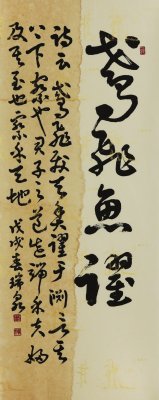 鳶飛魚躍
詩云鳶飛戾天魚躍于淵言其
上下察也君子之道造端乎夫婦
及其至也察乎天地 戊戌春瑞泉